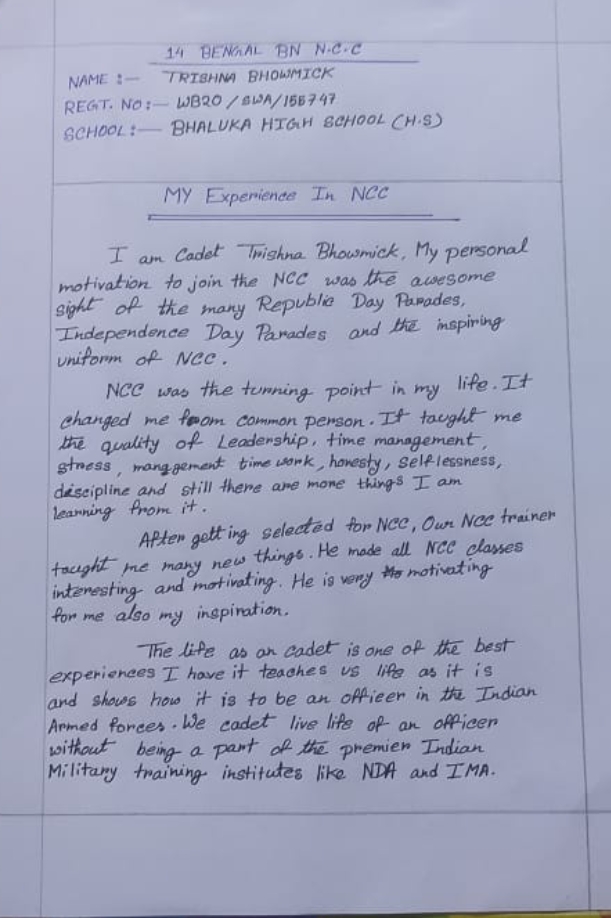 14 BENGAL BN N.C.C
NAME :- TRISHNA BHOWMICK
REGT. NO:- WB20/SWA/155747
SCHOOL:- BHALUKA HIGH SCHOOL (H.S)
MY Experience In NCC
I am Cadet Trishna Bhowmick, My personal
motivation to join the NCC was the awesome
sight of the many Republic Day Parades,
Independence Day Parades and the inspiring
uniform of NCC.
NCC was the turning point in my life. It
changed me from common person. It taught me
the quality of Leadership, time management,
stress, manggement time work, honesty, selflessness,
discipline and still there are more things I am
learning from it.
After getting selected for NCC, Our NCC trainer
taught me many new things. He made all NCC classes
interesting and motivating. He is very motivating
for me also my inspiration.
The life as an cadet is one of the best
experiences I have it teaches us life as it is
and shows how it is to be an officer in the Indian
Armed forces. We cadet live life of an officer
without being a part of the premier Indian
Military training institutes like NDA and IMA.